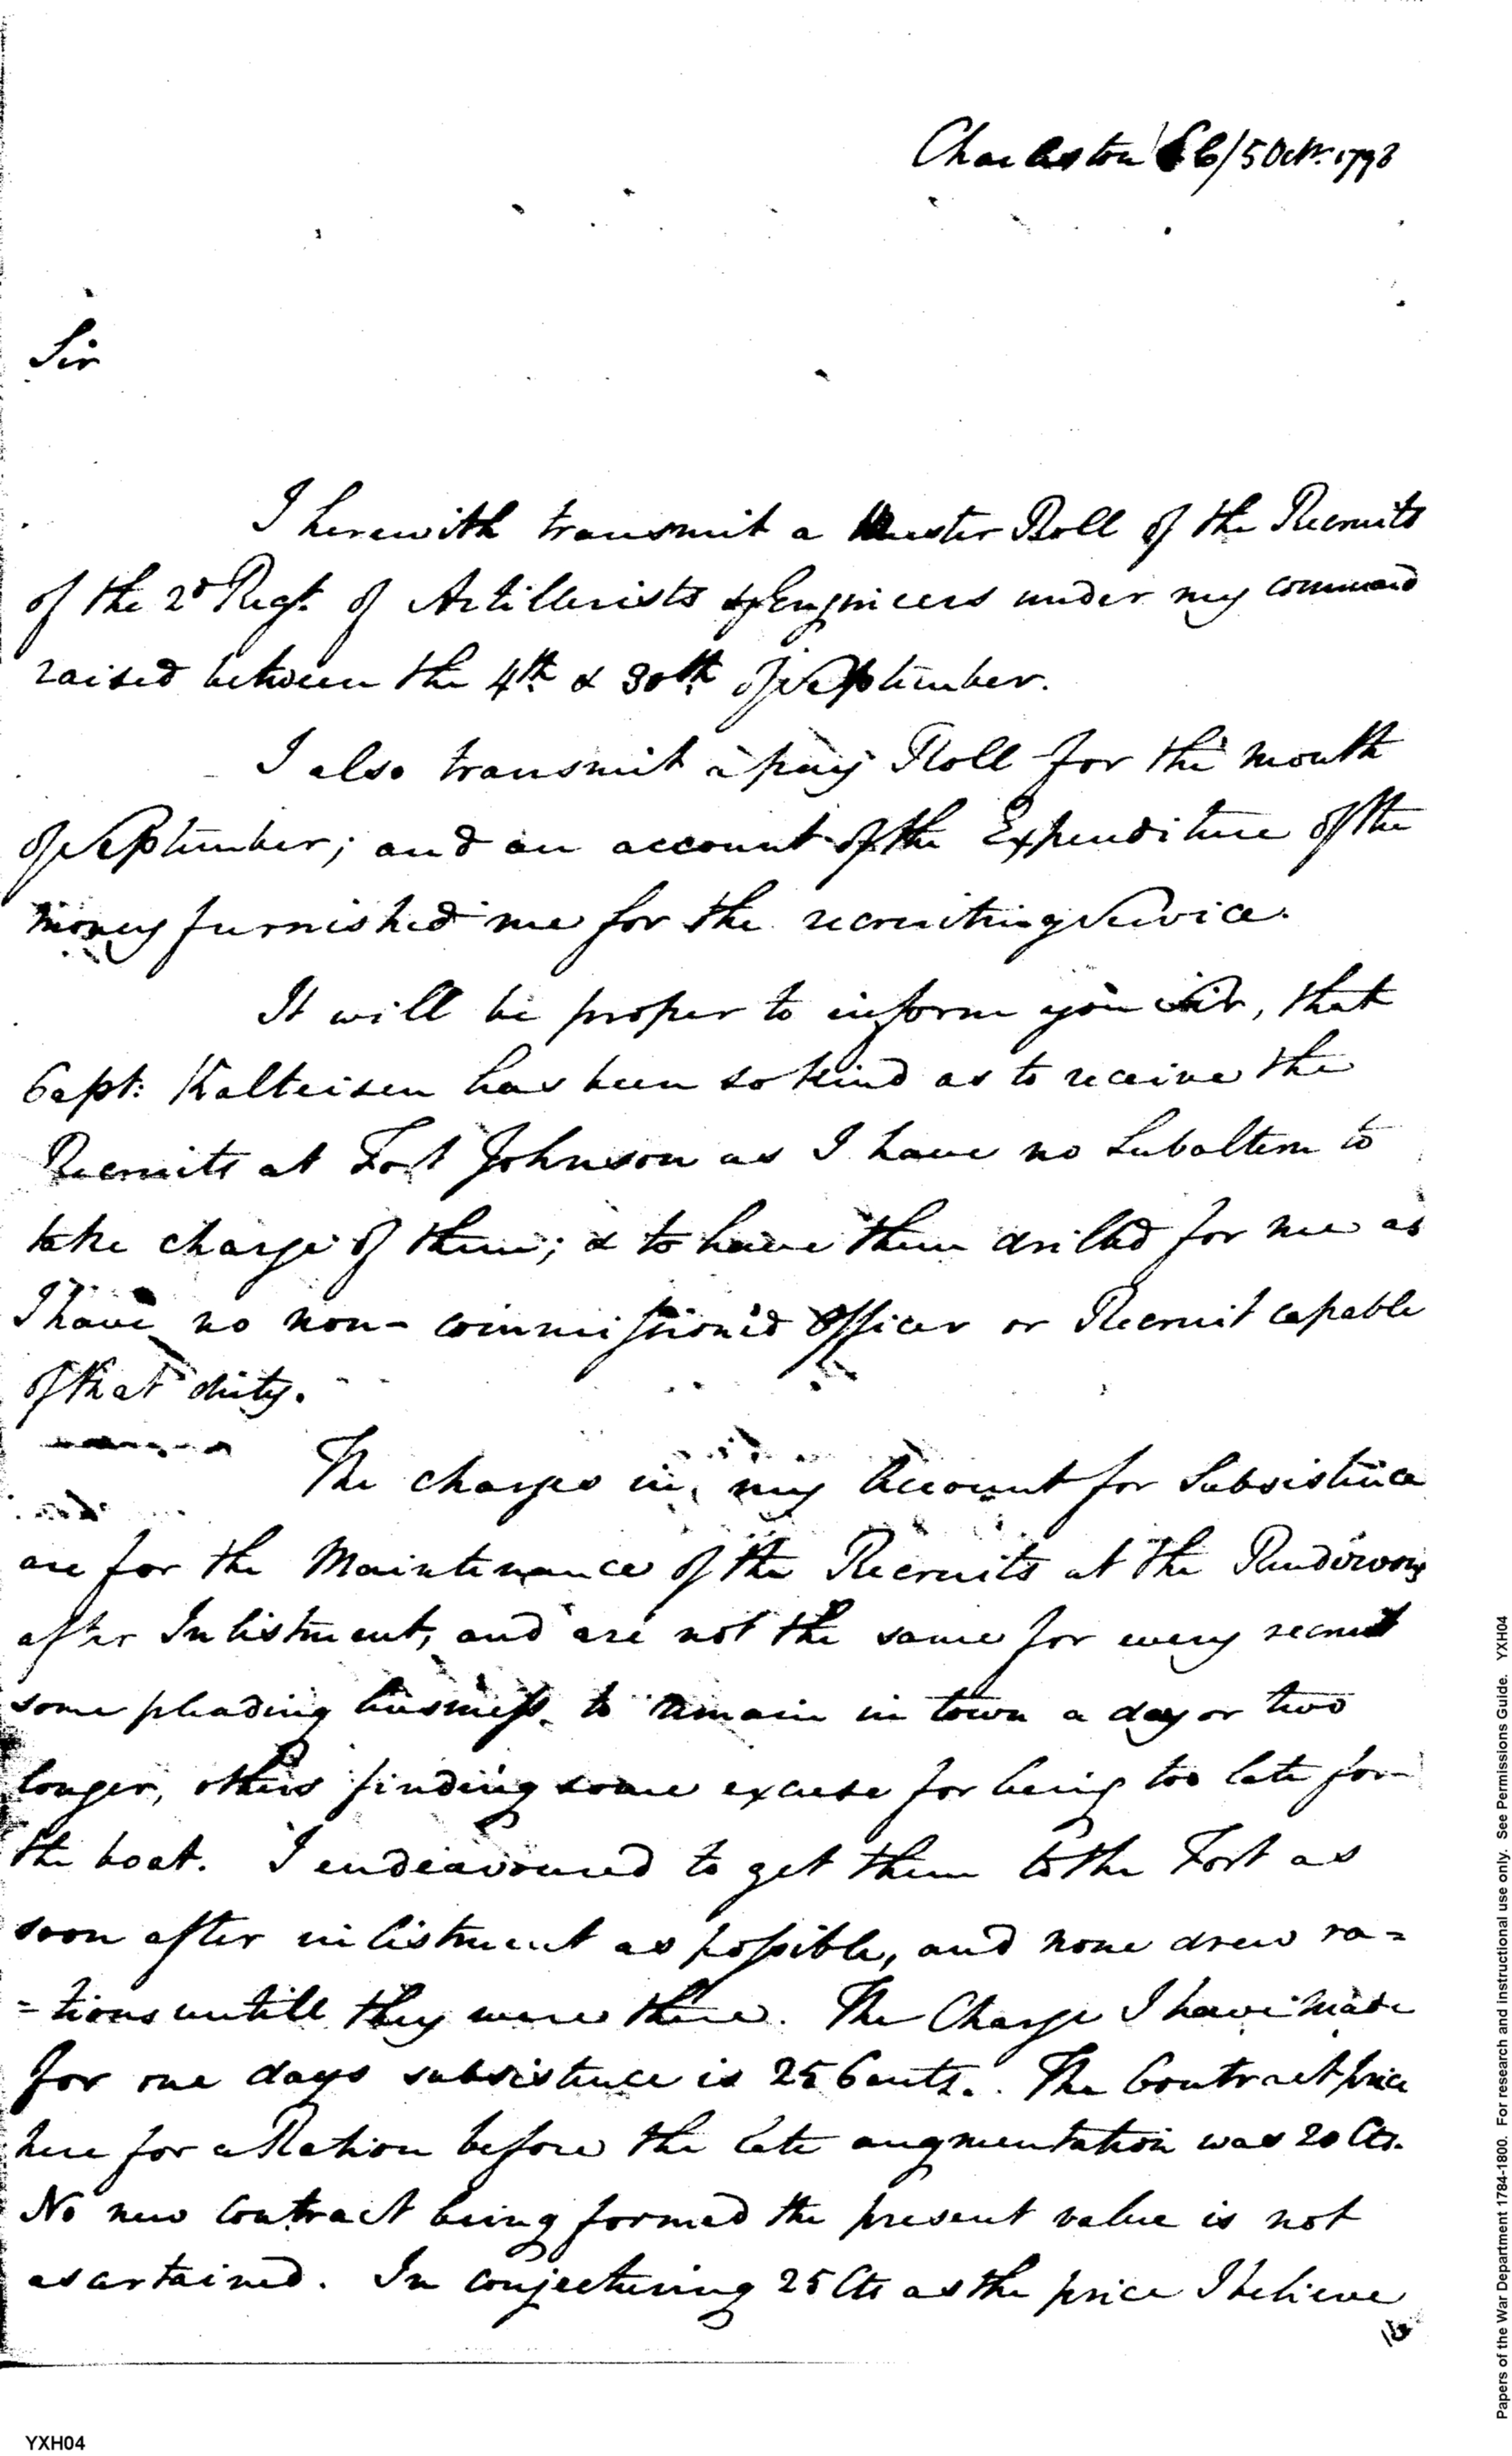 Charleston 5 Octr. 1798
Sir
I herewith transmit a Muster Roll of the Recruits
of the 2d Regt. of Artillerists & Engineers under my command
raised between the 4th. & 30th. of September.
I also transmit a pay Roll for the month
of September; and an account of the Expenditure of the
money furnished me for the recruiting Service.
It will be proper to inform you Sir, that
Capt: Kalteisen has been so kind as to receive the
Recruits at Fort Johnson as I have no Subaltern to
take charge of them; & to have them drilled for me as
I have no non-commission'd Officer or Recruit capable
of that duty.
The charges in my Account for Subsistence
are for the Maintenance of the Recruits at the Rendevous
after Inlistment, and are not the same for every recruit
some pleading business to remain in town a day or two
longer, others finding some excuse for being too late for
the boat. I endeavoured to get them to the Fort as
soon after inlistment as possible, and none drew ra=
=tions untill they were there. The Charge I have made
for one days subsistence is 25 Cents. The Contract price
here for a Ration before the late augmentation was 20 Cts.
No new Contract being formed the present value is not
ascertained. In conjecturing 25 Cts as the price I believe
YXH04
Papers of the War Department 1784-1800. For research and instructional use only. See Permissions Guide. YXH04